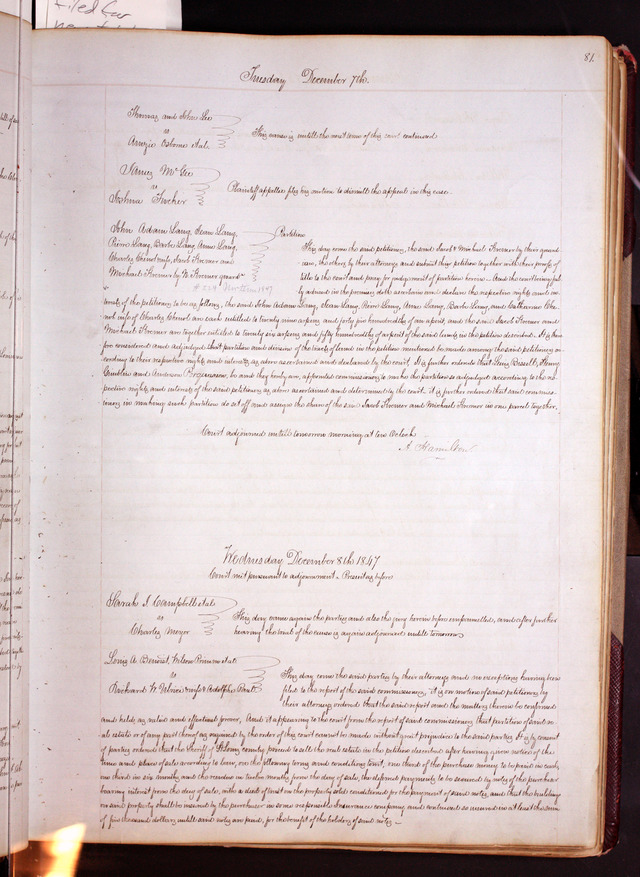 filed for
81
Tuesday December 7th.
Thomas and John Gee
vs
Arnzie Osborne et al.
This cause is untill the next term of this court continued
James McGee
vs
Joshua Tucher
Plaintiff appellee files his motion to dismiss the appeal in this case.
John Adam Lang, Jean Lang,
Pierre Lang, Barbe Lang, Anne Lang,
Charles Chenot & wife, Jacob Kremer and
Michael Kremer by N. Kremer guardn
Partition
This day come the said petitioners, the said Jacob & Michael Kremer by their guard
ian, the others by their attorney and submit their petition together with their proofs of
title to the court and pray for judgment of partition herein. And the court being ful
ly advised in the premises doth ascertain and declare the respective rights and in
terests of the petitioners to be as follows, the said John Adam Lang, Jean Lang, Pierre Lang, Anne Lang, Barbe Lang and Catharine Che
not wife of Charles Chenot are each entitled to twenty nine arpens and forty five hundredths of an arpent, and the said Jacob Kremer and
Michael Kremer are together entitled to twenty six arpens and fifty hundredths of arpent of the said lands in the petition described. It is there
fore considered and adjudged that partition and division of the tracts of land in the petition mentioned be made among the said petitioners ac
cording to their respective rights and interests as above ascertained and declared by the court. It is further ordered that Henry
and Anderson be and they hereby are, appointed commissioners to make the partition so adjudged according to the re
spective rights and interests of the said petitioners as above ascertained and determined by the court. it is further ordered that said commiss
ioners in making such partition do set off and assign the share of the said Jacob Kremer and Michael Kremer in one parcel together.
Court adjourned untill tomorrow morning at ten Oclock
A. Hamilton
Wednesday December 8th 1847
Court met pursuant to adjournment. Present as before
Sarah J. Campbell et al
vs
Charles Meyer
This day came again the parties and also the jury herein before empannelled, and after further
hearing the trial of the cause is again adjourned untill tomorrow
Louis A. Benoist, Wilson Primm et al
vs
Richard W. Ulrici & wife & Adolphe Paul
This day come the said parties by their attorneys and no exceptions having been
filed to the report of the said commissioners, it is on motion of said petitioners by
their attorney ordered that the said report and the matters therein be confirmed
and held as valid and effectual forever. And it appearing to the court from the report of said commissioners that partition of said re
al estate or of any part thereof as required by the order of this court cannot be made without great prejudice to the said parties. It is by consent
of parties ordered that the Sheriff of St. Louis county proceed to sell the real estate in the petition described after having given notice of the
time and place of sale according to law, on the following terms and conditions towit, one third of the purchase money to be paid in cash,
one third in six months and the residue in twelve months from the day of sale, the deferred payments to be secured by notes of the purchaser
bearing interest from the day of sale, with a deed of trust on the property sold conditioned for the payment of said notes, and that the buildings
on said property shall be insured by the purchaser in some responsible Insurance company and continued so insured in at least the sum
of five thousand dollars untill said notes are paid, for the benefit of the holders of said notes.